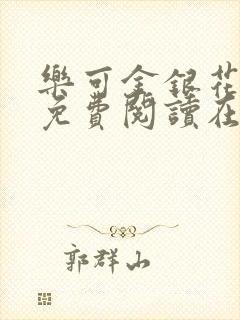 樂可金銀花
免費閱讀在
郭群山